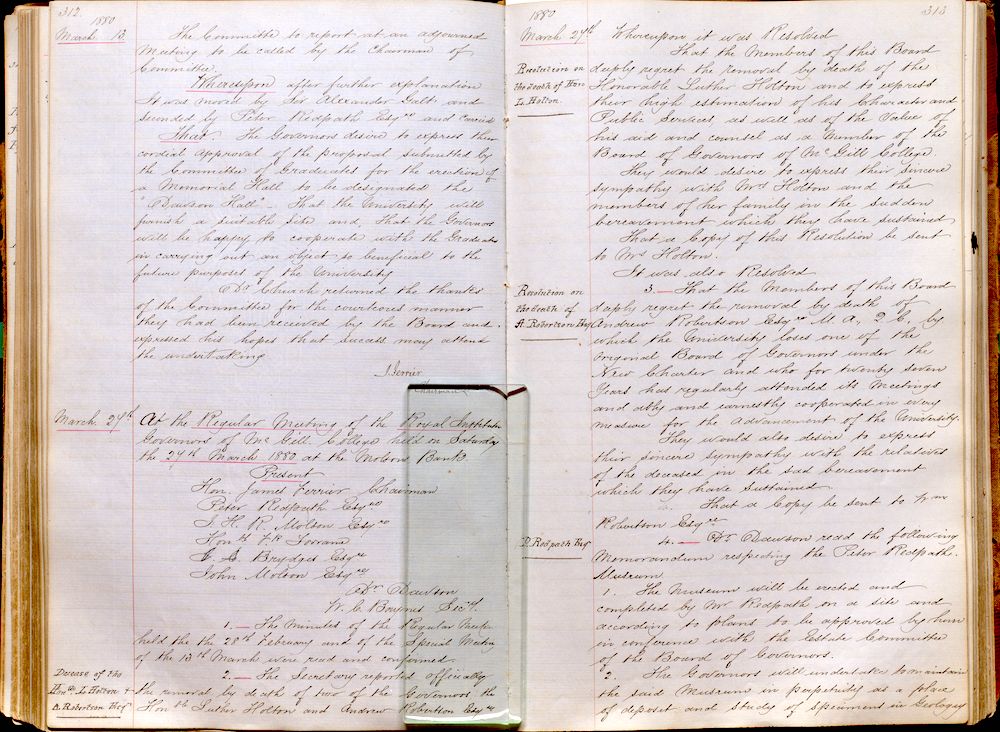 312.
1880
March 13
The Committee to report at an adjourned
Meeting to be called by the Chairman of
Committee.
Whereupon after further explanation
It was moved by Sir Alexander Galt and
seconded by Peter Redpath Esqre and Carried
That The Governors desire to express their
cordial approval of the proposal submitted by
the Committee of Graduates for the erection of
a Memorial Hall to be designated the
"Dawson Hall" - That the University will
furnish a suitable Site and, That the Governors
will be happy to cooperate with the Graduates
in carrying out an object so beneficial to the
future purposes of the University
Dr. Church returned the thanks
of the Committee for the courteous manner
they had been received by the Board and
expressed his hopes that success may attend
the undertaking
J. Ferrier
Chairman
March 27th
At the Regular Meeting of the Royal Institute
Governors of Mc Gill College held on Saturday
the 27th March 1880 at the Molsons Bank
Present
Hon. James Ferrier Chairman
Peter Redpath Esqre
J. H. R. Molson Esqre
Honble F. W. Torrance
C. J. Brydges Esqre
John Molson Esqre
Dr Dawson
W. C. Baynes Secy.
1. — The Minutes of the Regular Meetg
held the the 28th February and of the Special Meeting
of the 13th March were read and confirmed.
Decease of the
Honble L Holton &
A. Robertson Esq
2. — The Secretary reported officially
the removal by death of two of the Governors the
Honble Luther Holton and Andrew Robertson Esqre
313
1880
March 27th
Whereupon it was Resolved
Resolution on
the death of Hon
L. Holton.
That the Members of this Board
deeply regret the removal by death of the
Honorable Luther Holton and to express
their high estimation of his Character and
Public Services as well as of the Value of
his aid and counsel as a Member of the
Board of Governors of Mc Gill College.
They would desire to express their sincere
sympathy with Mrs Holton and the
members of her family in the sudden
bereavement which they have sustained
That a Copy of this Resolution be sent
to Mrs Holton.
It was also Resolved
Resolution on
the death of
A. Robertson Esq
3. — That the Members of this Board
deeply regret the removal by death of
Andrew Robertson Esqre M. A., Q. C., by
which the University loses one of the
original Board of Governors under the
New Charter and who for twenty seven
Years has regularly attended its Meetings
and ably and earnestly cooperated in every
measure for the advancement of the University.
They would also desire to express
their sincere sympathy with the relatives
of the deceased in the sad bereavement
which they have sustained
That a Copy be sent to Wm
Robertson Esqre
P. Redpath Esq
4. — Dr Dawson read the following
Memorandum respecting the Peter Redpath
Museum
1. The Museum will be erected and
completed by Mr Redpath on a site and
according to plans to be approved by him
in conference with the Estate Committee
of the Board of Governors.
2. The Governors will undertake to maintain
the said Museum in perpetuity as a place
of deposit and study of specimens in Geology